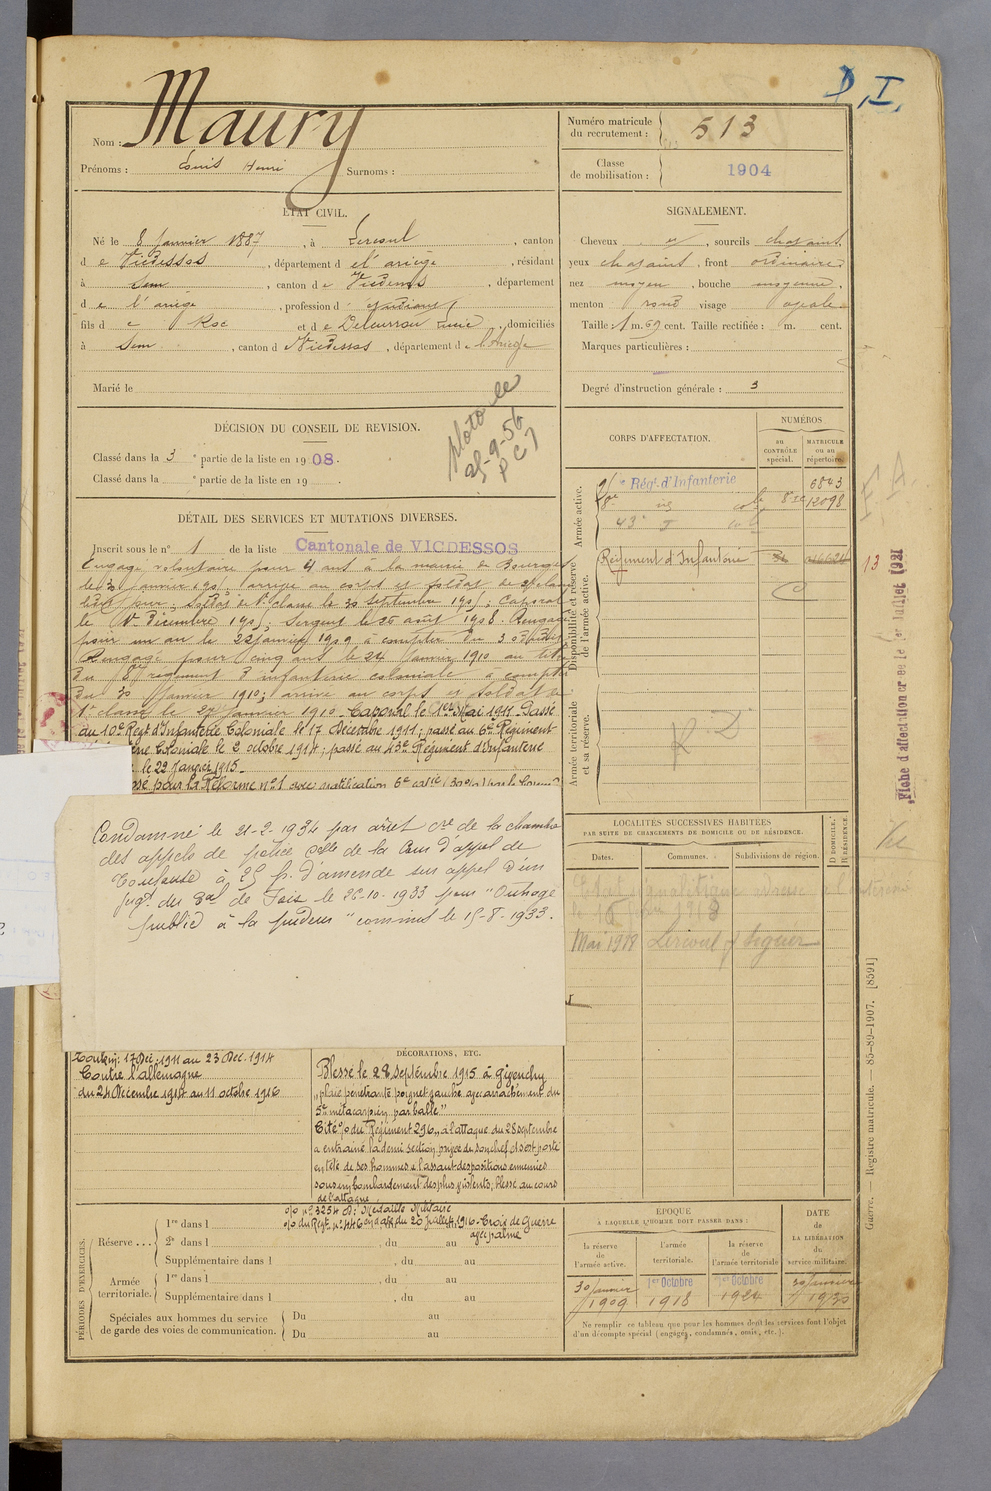 D.I.
Maury
Nom :
Prénoms : Louis Henri Surnoms :
Numéro matricule du recrutement : 513
Classe de mobilisation : 1904
ÉTAT CIVIL.
Né le 8 Janvier 1887, à Lercoul, canton
de Vicdessos, département de l'ariège, résidant
à Sem, canton de Vicdessos, département
de l'ariège, profession d
fils de Roc et de Delcurrou Lucie, domiciliés
à Sem, canton de Vicdessos, département de l'Ariège
Marié le
SIGNALEMENT.
Cheveux, sourcils chataint,
yeux chataint, front ordinaire,
nez moyen, bouche moyenne,
menton rond visage ovale.
Taille : 1 m. 69 cent. Taille rectifiée : m. cent.
Marques particulières :
Degré d'instruction générale : 3
DÉCISION DU CONSEIL DE REVISION.
Classé dans la 3e partie de la liste en 1908.
Classé dans la e partie de la liste en 19
25-9-56
DÉTAIL DES SERVICES ET MUTATIONS DIVERSES.
Inscrit sous le n° 1 de la liste Cantonale de VICDESSOS
Engagé volontaire pour 4 ans à la mairie de Bourges
le 30 Janvier 1905, arrivé au corps et soldat de 2e classe
ledit jour, soldat de 1e classe le 30 septembre 1905, Caporal
le décembre 1905; Sergent le 26 août 1908. Rengagé
pour un an le 22 janvier 1909 à compter du 30
Rengagé pour cinq ans le 24 Janvier 1910 au titre
du 8e régiment d'infanterie coloniale à compter
du 30 Janvier 1910; arrivé au corps et soldat de
1e classe le 27 Janvier 1910. Caporal le 1er Mai 1911. Passé
au 10e Regt d'Infanterie Coloniale le 17 Décembre 1911; passé au 6e Régiment
Coloniale le 2 octobre 1914; passé au 43e Régiment d'Infanterie
le 29 Janvier 1915.
pour la Réforme n° 1 avec gratification 6e catie (30 %) par la Comm
Condamné le 21-2-1934 par arret de la chambre
des appels de police Celle de la Cour d'appel de
Toulouse à 25 f. d'amende sur appel d'un
jugt. du de Foix le 26-10-1933 pour "Outrage
public à la pudeur" commis le 15-8-1933.
Tonkin : 17 Déc. 1911 au 23 Déc. 1914
Contre l'allemagne
du 24 Décembre 1914 au 11 octobre 1916
DÉCORATIONS, ETC.
Blessé le 28 septembre 1915 à Givenchy
"plaie pénétrante poignet gauche avec arrachement du
5e métacarpien par balle"
Cité o/o du Régiment 296 "à l'attaque du 28 septembre
a entrainé la demi section privée de son chef et s'est porté
en tête de ses hommes à l'assaut des positions ennemies
sous un bombardement des plus violents; blessé au cours
de l'attaque
o/o n° 3254 D : Médaille Militaire
o/o du Regt n° 446 du 20 juillet 1916 - Croix de Guerre
avec palme
CORPS D'AFFECTATION.
NUMÉROS
au CONTRÔLE spécial.
MATRICULE ou au répertoire.
Armée active.
Régt. d'Infanterie 6843
8e col 12098
43e
Disponibilité et réserve de l'armée active.
Régiment d'Infanterie
13
Armée territoriale et sa réserve.
R.D.
Fiche d'affectation créée le 1er Juillet 1921
LOCALITÉS SUCCESSIVES HABITÉES
PAR SUITE DE CHANGEMENTS DE DOMICILE OU DE RÉSIDENCE.
Dates. Communes. Subdivisions de région.
D DOMICILE. R RÉSIDENCE.
Etat signalétique
Mai 1918 Lercoul
PÉRIODES D'EXERCICES.
Réserve ...
1re dans l
2e dans l , du au
Supplémentaire dans l , du au
Armée territoriale.
1re dans l , du au
Supplémentaire dans l , du au
Spéciales aux hommes du service de garde des voies de communication.
Du au
Du au
ÉPOQUE
A LAQUELLE L'HOMME DOIT PASSER DANS :
la réserve de l'armée active.
l'armée territoriale.
la réserve de l'armée territoriale
DATE DE LA LIBÉRATION du service militaire.
30 Janvier 1909
1er Octobre 1918
1er Octobre 1924
30 Janvier 1930
Ne remplir ce tableau que pour les hommes dont les services font l'objet
d'un décompte spécial (engagés, condamnés, omis, etc.).
Guerre. — Registre matricule. — 85-89-1907. [8591]